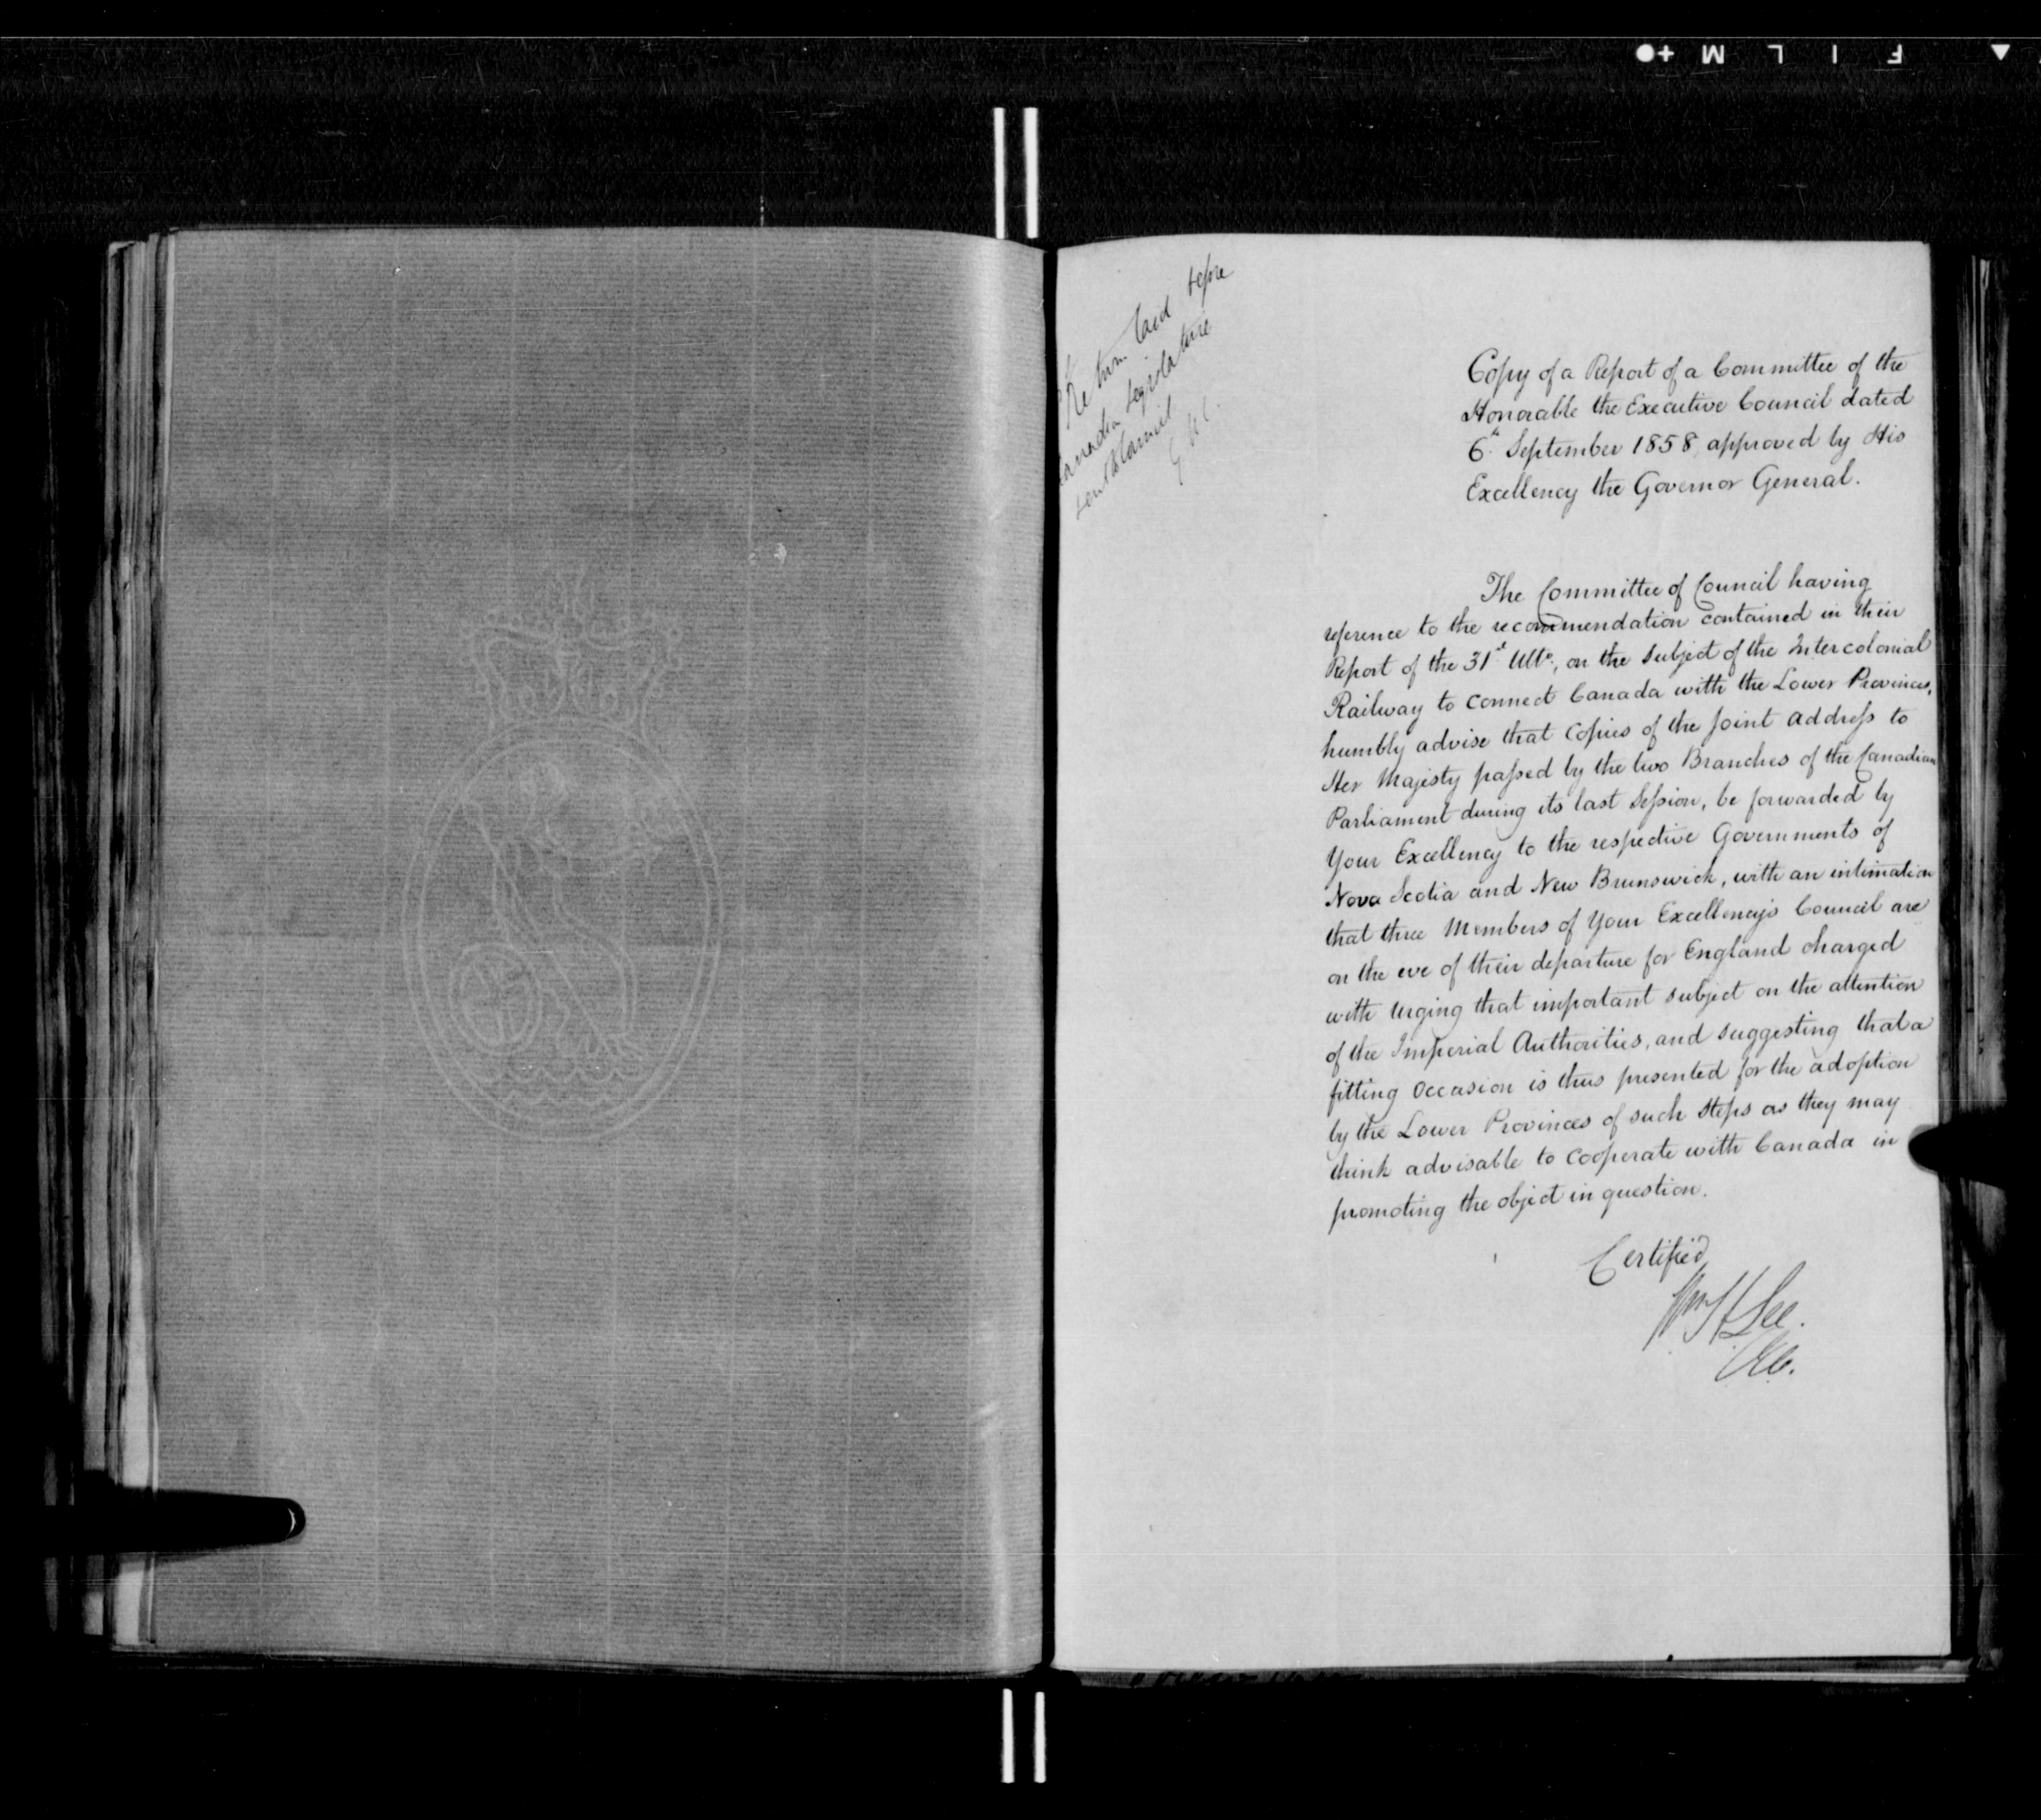 F I L M
Return laid before
Canadian Legislature
Copy of a Report of a Committee of the
Honorable the Executive Council dated
6th September 1858, approved by His
Excellency the Governor General.
The Committee of Council having
reference to the recommendation contained in their
Report of the 31st Ulto, on the subject of the Intercolonial
Railway to connect Canada with the Lower Provinces,
humbly advise that Copies of the Joint Address to
Her Majesty passed by the two Branches of the Canadian
Parliament during its last Session, be forwarded by
Your Excellency to the respective Governments of
Nova Scotia and New Brunswick, with an intimation
that three Members of Your Excellency's Council are
on the eve of their departure for England charged
with urging that important subject on the attention
of the Imperial Authorities, and suggesting that a
fitting occasion is thus presented for the adoption
by the Lower Provinces of such steps as they may
think advisable to cooperate with Canada in
promoting the object in question.
Certified
Wm H Lee.